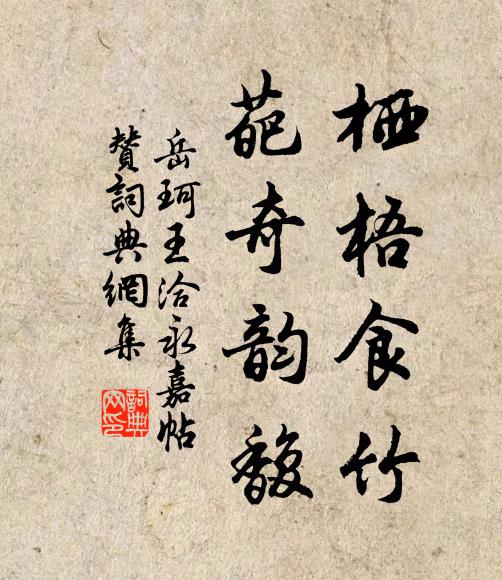 栖梧食竹
葩奇韵馥
岳珂王洽永嘉帖
赞詞典網集
詞典网印